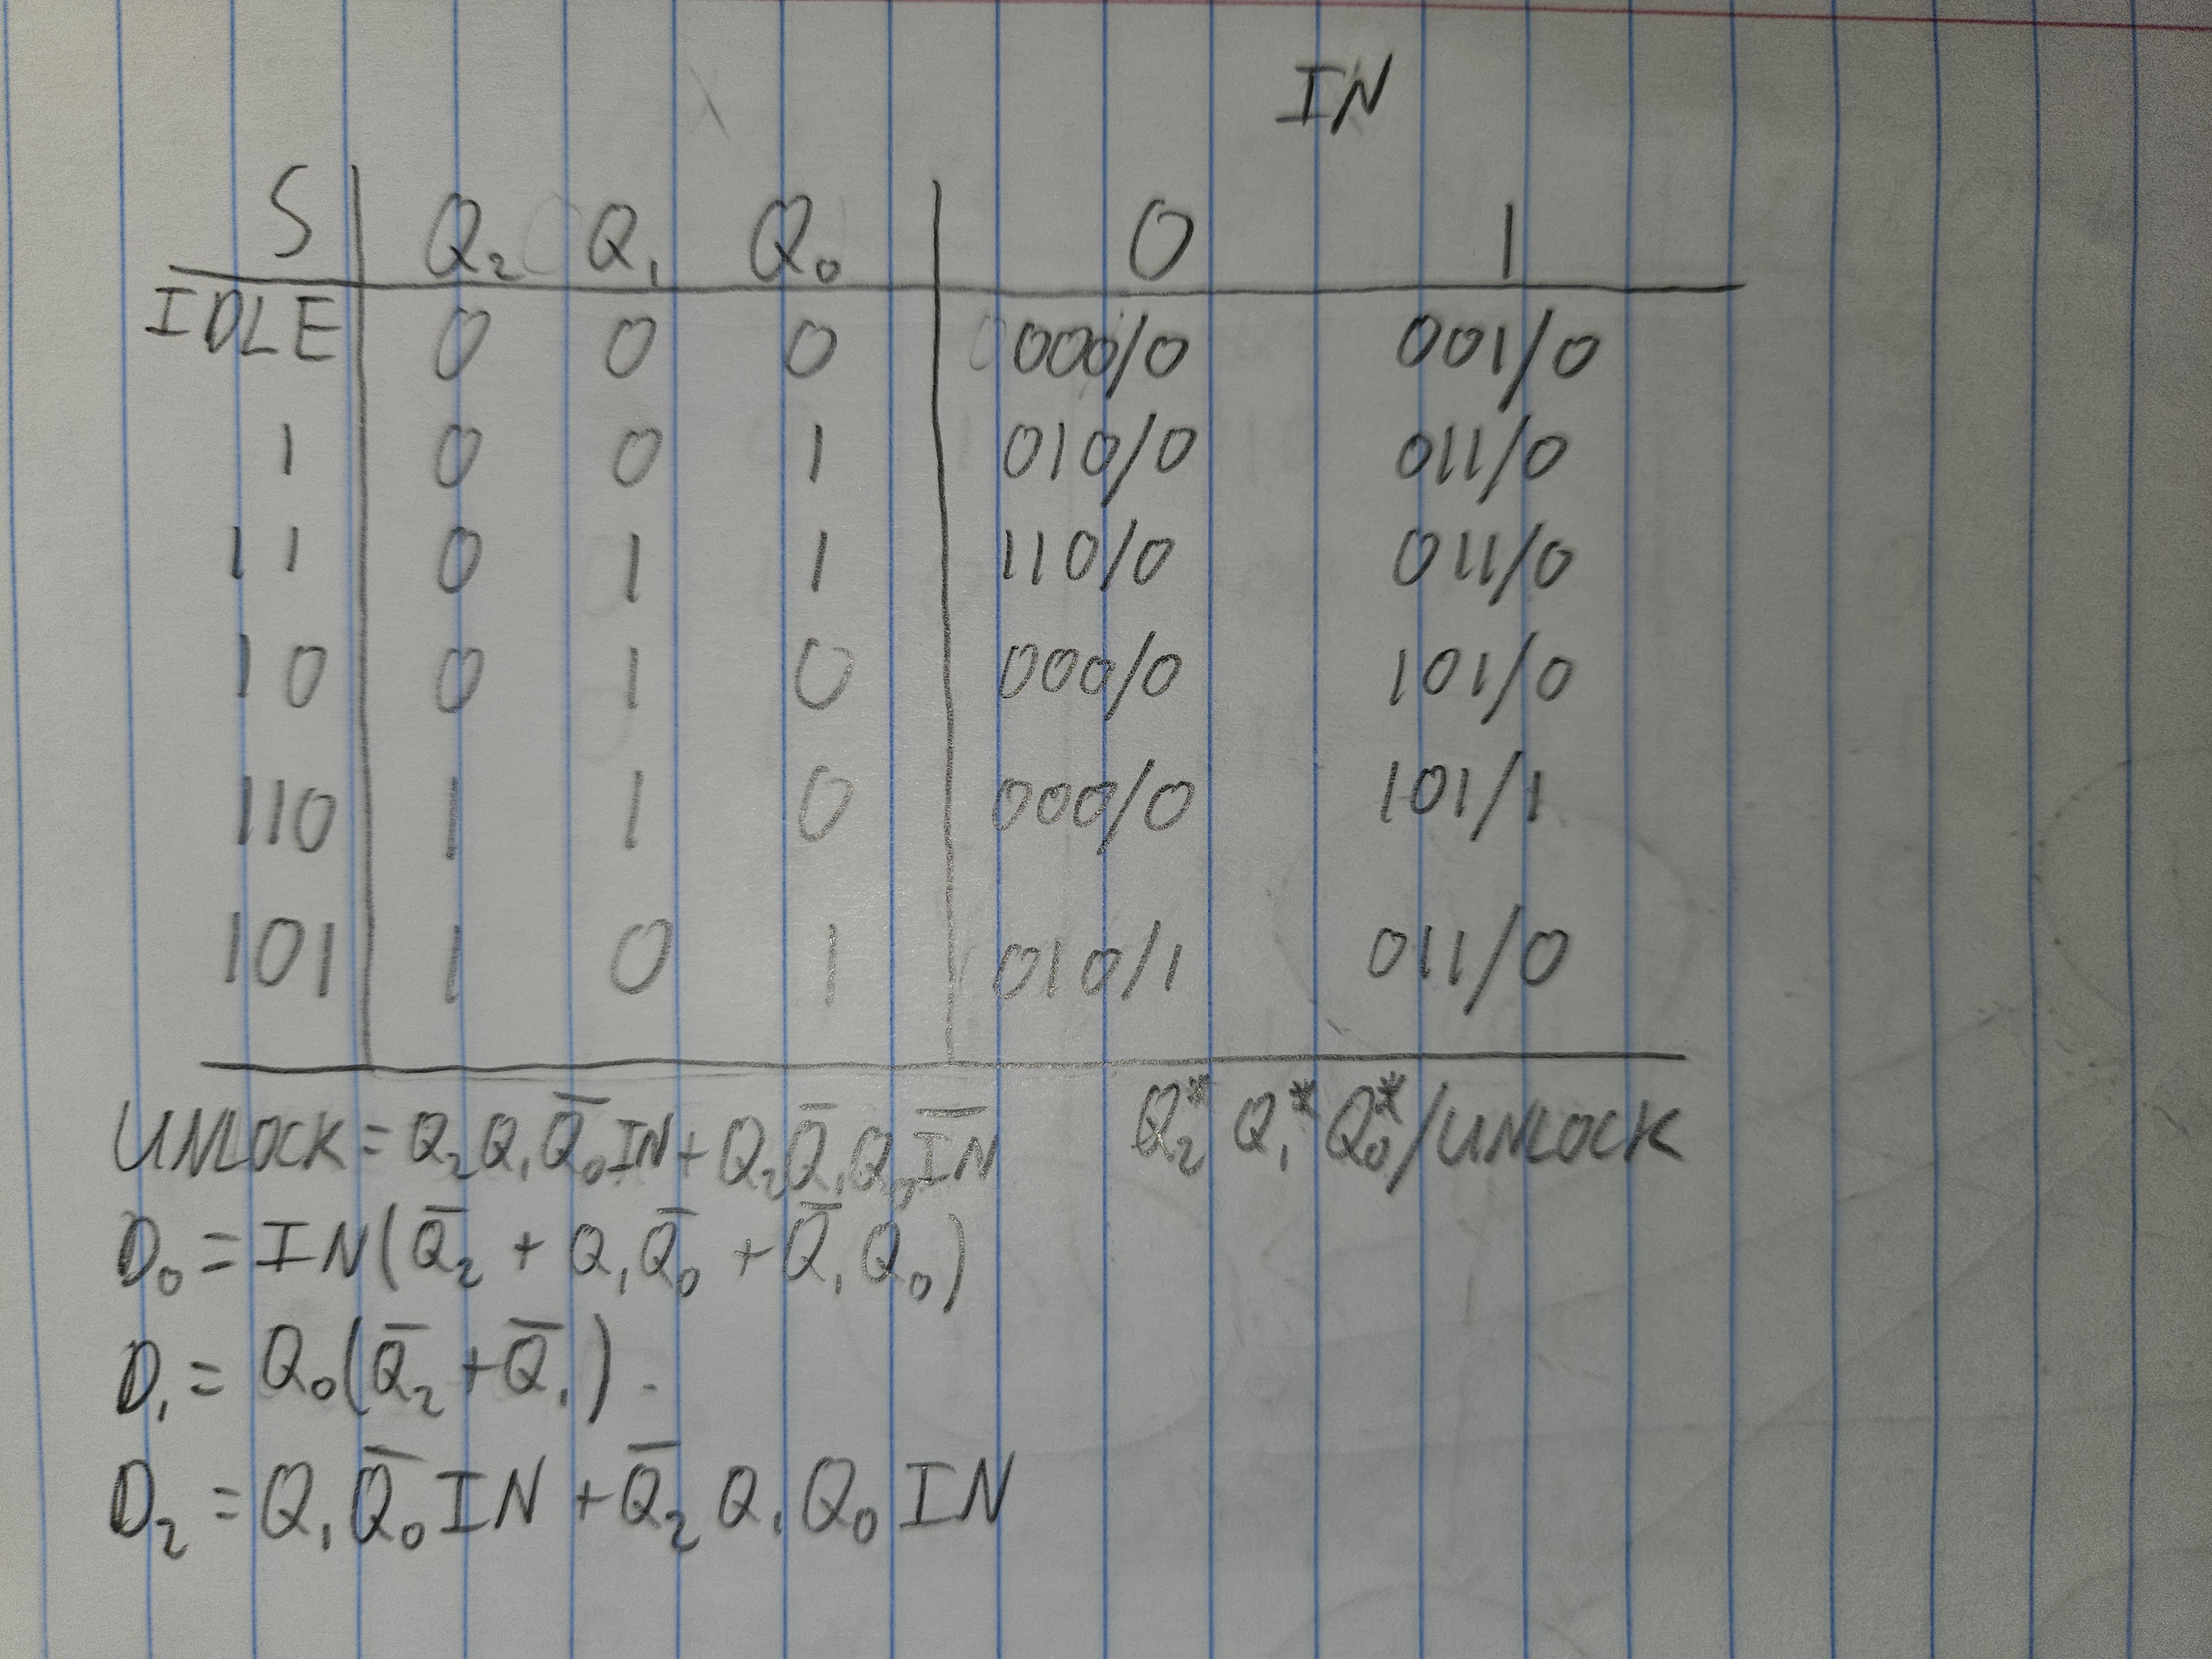 IN
S Q₂ Q₁ Q₀ 0 1
IDLE 0 0 0 000/0 001/0
1 0 0 1 010/0 011/0
11 0 1 1 110/0 011/0
10 0 1 0 000/0 101/0
110 1 1 0 000/0 101/1
101 1 0 1 010/1 011/0
UNLOCK = Q₂Q₁Q̅₀IN + Q₂Q̅₁Q₀I̅N̅ Q₂* Q₁* Q₀*/UNLOCK
D₀ = IN(Q̅₂ + Q₁Q̅₀ + Q̅₁Q₀)
D₁ = Q₀(Q̅₂ + Q̅₁).
D₂ = Q₁Q̅₀IN + Q̅₂Q₁Q₀IN